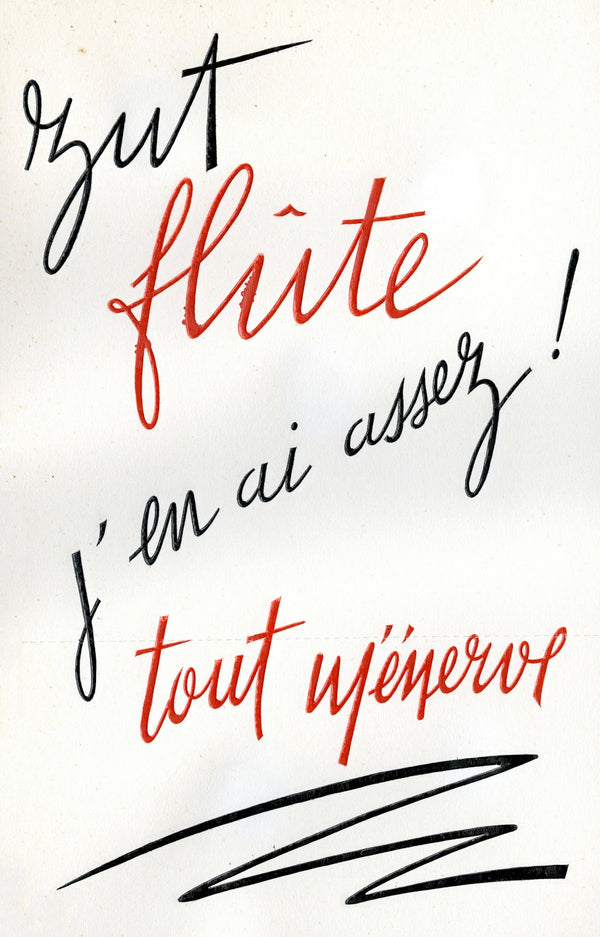 zut
flûte
j'en ai assez !
tout m'énerve